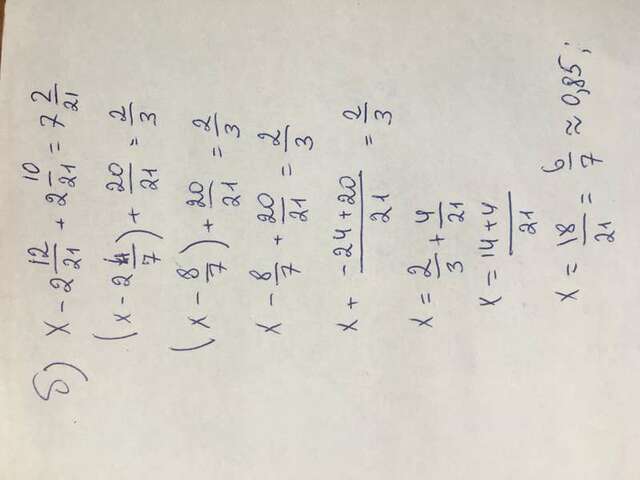 б) x - 2 12/21 + 2 10/21 = 7 2/21
(x - 2 4/7) + 20/21 = 2/3
(x - 8/7) + 20/21 = 2/3
x - 8/7 + 20/21 = 2/3
x + (-24+20)/21 = 2/3
x = 2/3 + 4/21
x = (14+4)/21
x = 18/21 = 6/7 ≈ 0,85;